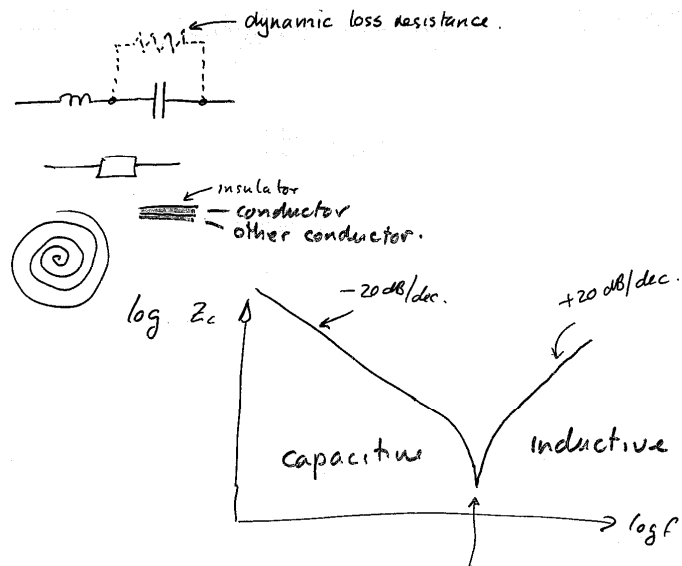 dynamic loss resistance.
insulator
conductor
other conductor.
log Zc
-20 dB/dec.
+20 dB/dec.
capacitive
inductive
log f